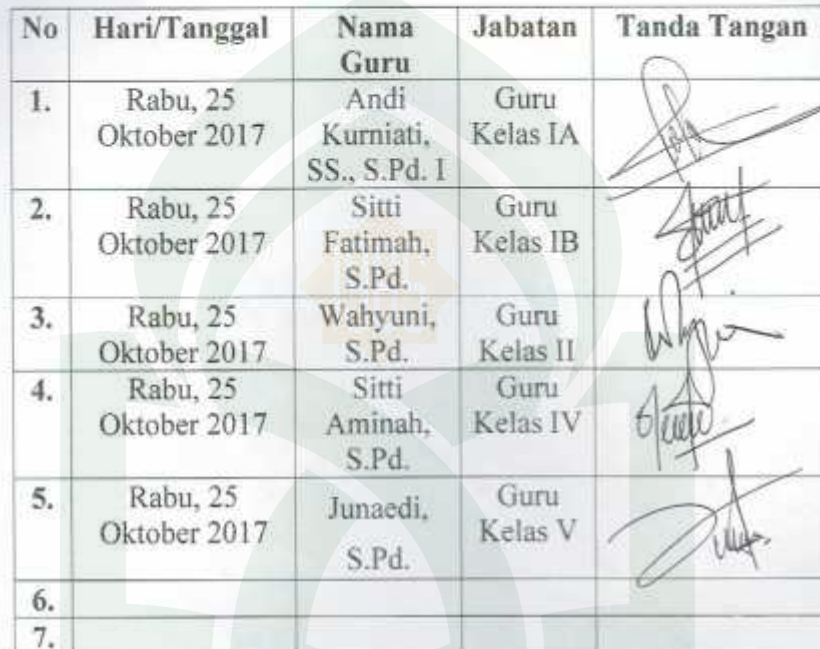 No Hari/Tanggal Nama Guru Jabatan Tanda Tangan
1. Rabu, 25 Oktober 2017 Andi Kurniati, SS., S.Pd. I Guru Kelas IA
2. Rabu, 25 Oktober 2017 Sitti Fatimah, S.Pd. Guru Kelas IB
3. Rabu, 25 Oktober 2017 Wahyuni, S.Pd. Guru Kelas II
4. Rabu, 25 Oktober 2017 Sitti Aminah, S.Pd. Guru Kelas IV
5. Rabu, 25 Oktober 2017 Junaedi, S.Pd. Guru Kelas V
6.
7.